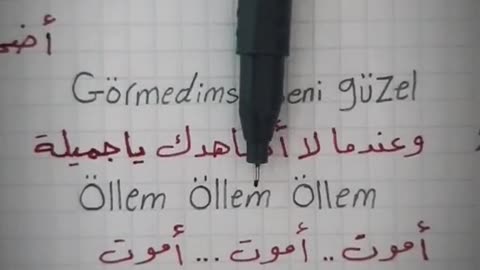 Görmedims eni güzel
وعندما لا ياجميلة
Öllem Öllem Öllem
أموت .. أموت ... أموت